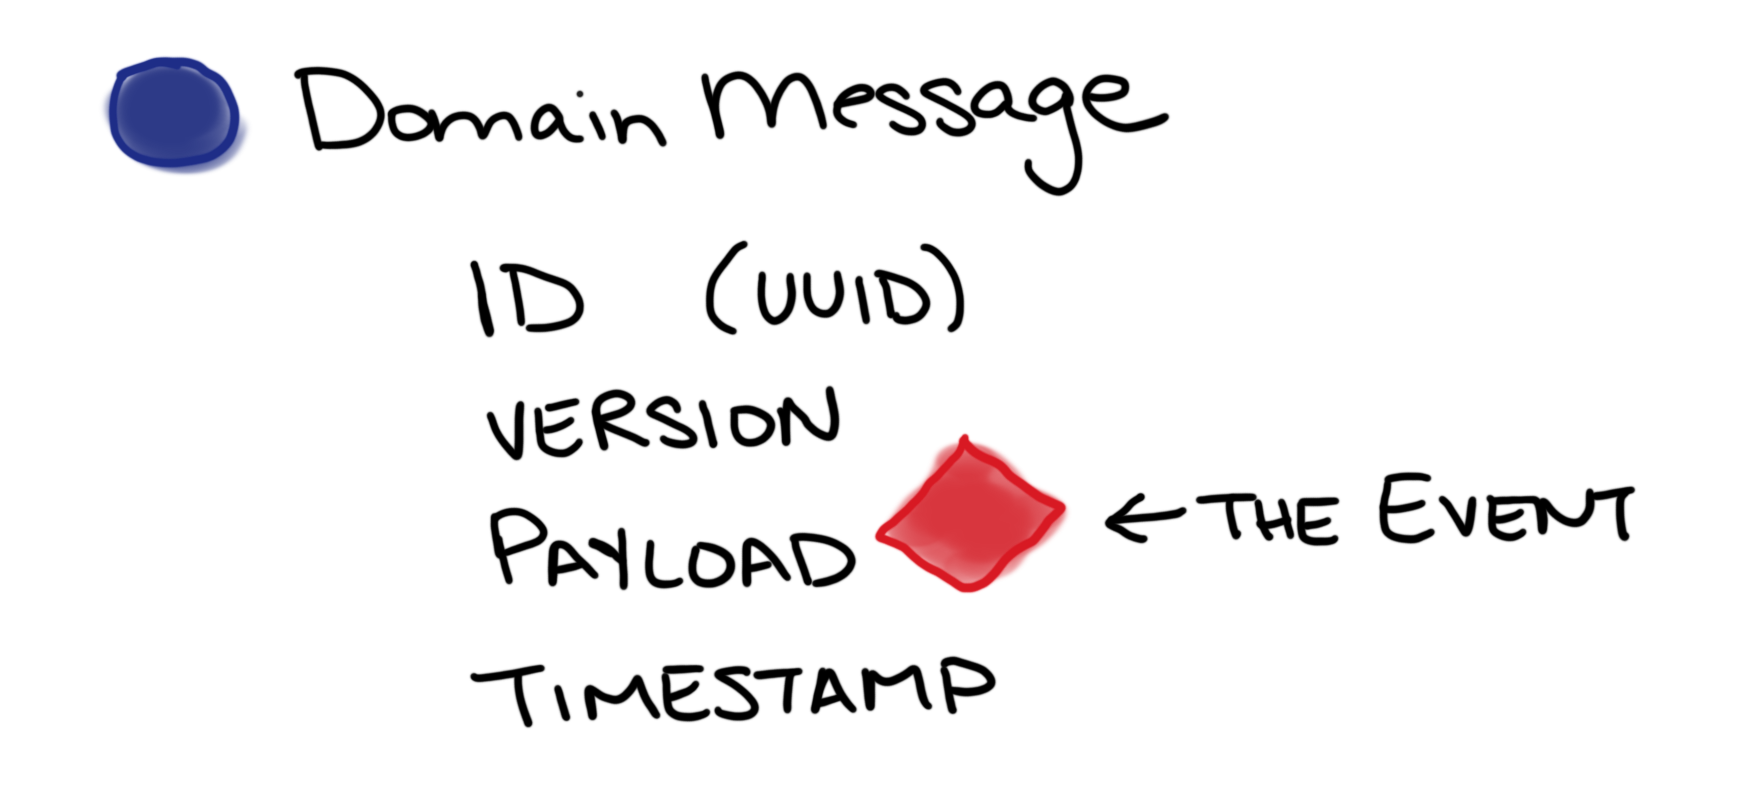 Domain Message
ID (UUID)
VERSION
PAYLOAD ← THE EVENT
TIMESTAMP